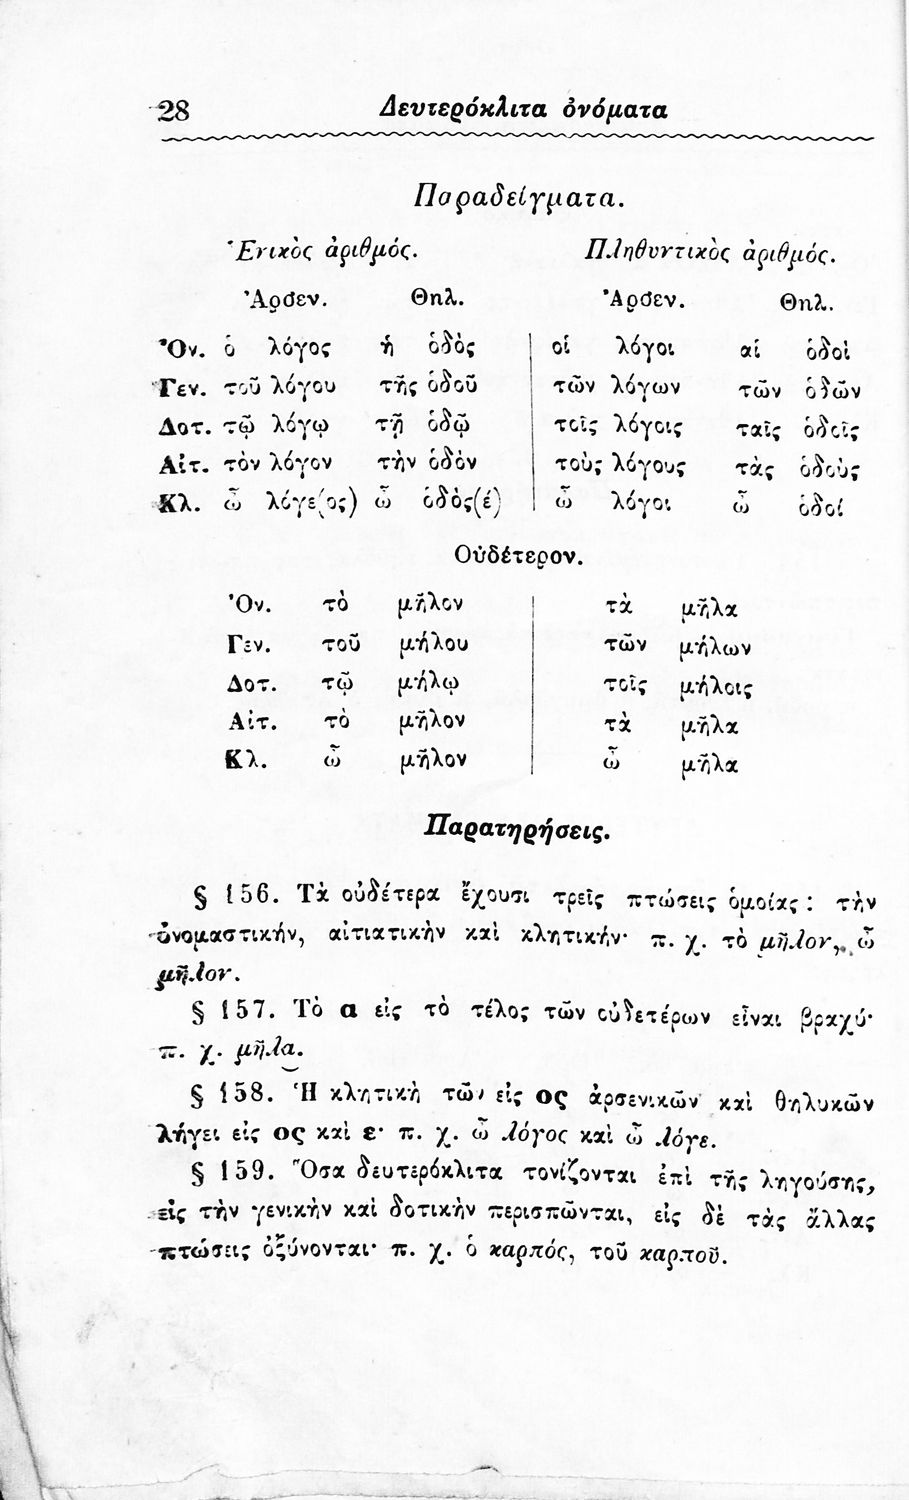 28 Δευτερόκλιτα ὀνόματα
Παραδείγματα.
Ἑνικὸς ἀριθμός. Πληθυντικὸς ἀριθμός.
Ἀρσεν. Θηλ. Ἀρσεν. Θηλ.
Ὀν. ὁ λόγος ἡ ὁδὸς οἱ λόγοι αἱ ὁδοὶ
Γεν. τοῦ λόγου τῆς ὁδοῦ τῶν λόγων τῶν ὁδῶν
Δοτ. τῷ λόγῳ τῇ ὁδῷ τοῖς λόγοις ταῖς ὁδοῖς
Αἰτ. τὸν λόγον τὴν ὁδὸν τοὺς λόγους τὰς ὁδοὺς
Κλ. ὦ λόγε(ος) ὦ ὁδὸς(έ) ὦ λόγοι ὦ ὁδοί
Οὐδέτερον.
Ὀν. τὸ μῆλον τὰ μῆλα
Γεν. τοῦ μήλου τῶν μήλων
Δοτ. τῷ μήλῳ τοῖς μήλοις
Αἰτ. τὸ μῆλον τὰ μῆλα
Κλ. ὦ μῆλον ὦ μῆλα
Παρατηρήσεις.
§ 156. Τὰ οὐδέτερα ἔχουσι τρεῖς πτώσεις ὁμοίας: τὴν
ὀνομαστικήν, αἰτιατικὴν καὶ κλητικήν· π. χ. τὸ μῆλον, ὦ
μῆλον.
§ 157. Τὸ α εἰς τὸ τέλος τῶν οὐδετέρων εἶναι βραχύ·
π. χ. μῆλα.
§ 158. Ἡ κλητικὴ τῶν εἰς ος ἀρσενικῶν καὶ θηλυκῶν
λήγει εἰς ος καὶ ε· π. χ. ὦ λόγος καὶ ὦ λόγε.
§ 159. Ὅσα δευτερόκλιτα τονίζονται ἐπὶ τῆς ληγούσης,
εἰς τὴν γενικὴν καὶ δοτικὴν περισπῶνται, εἰς δὲ τὰς ἄλλας
πτώσεις ὀξύνονται· π. χ. ὁ καρπός, τοῦ καρποῦ.